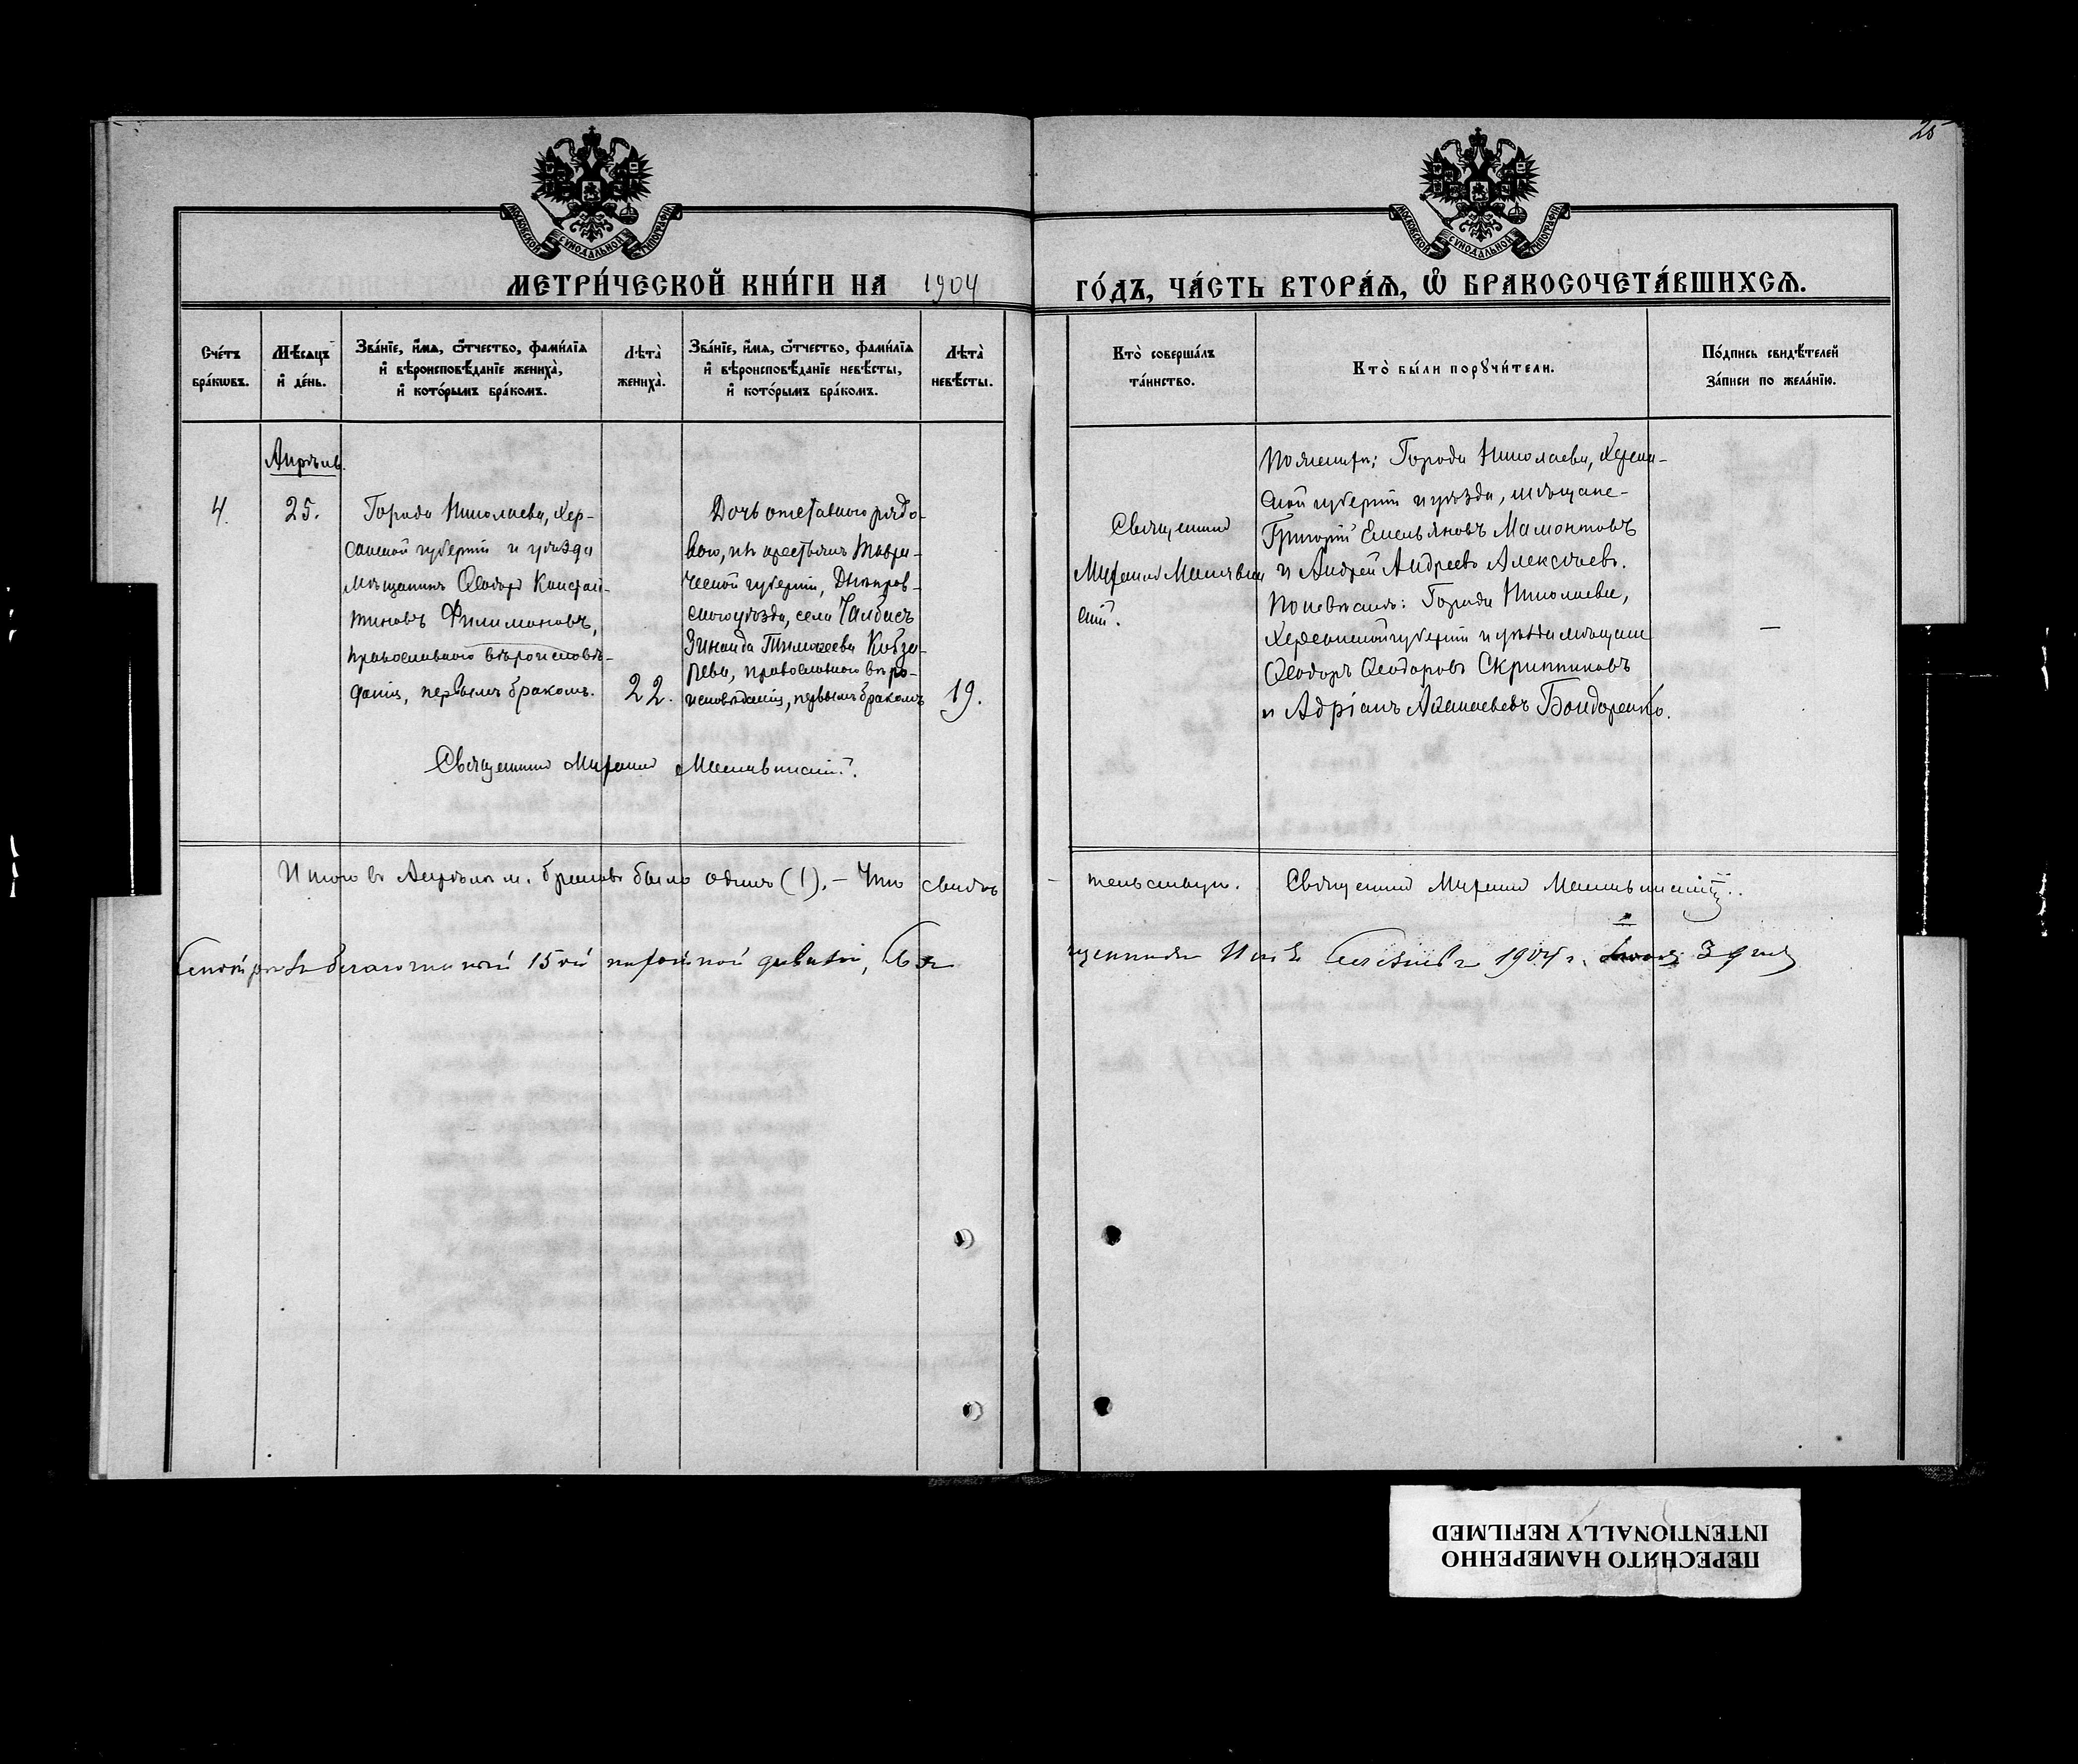 25
МОСКОВСКОЙ СУНОДАЛЬНОЙ ТИПОГРАФІИ
МОСКОВСКОЙ СУНОДАЛЬНОЙ ТИПОГРАФІИ
МЕТРИ́ЧЕСКОЙ КНИ́ГИ НА 1904
ГО́ДЪ, ЧА́СТЬ ВТОРА́Ѧ, Ѽ БРАКОСОЧЕТА́ВШИХСѦ.
Сче́тъ
бра́кѡвъ.
Мѣ́сѧцъ
и҆ де́нь.
Зва́нїе, и҆́мѧ, ѻ҆́тчество, фами́лїѧ
и҆ вѣроисповѣ́данїе жениха̀,
и҆ кото́рымъ бра́комъ.
Лѣта̀
жениха̀.
Зва́нїе, и҆́мѧ, ѻ҆́тчество, фами́лїѧ
и҆ вѣроисповѣ́данїе невѣ́сты,
и҆ кото́рымъ бра́комъ.
Лѣта̀
невѣ́сты.
Кто̀ соверша́лъ
та́инство.
Кто̀ бы́ли порꙋчи́тели.
По́дпись свидѣ́телей
за́писи по жела́нїю.
Апрѣль.
4.
25.
Города Николаева, Хер-
сонской губерніи и уѣзда
мѣщанинъ Ѳеодоръ Констан-
тиновъ Филимоновъ,
православнаго вѣроисповѣ-
данія, первымъ бракомъ.
22.
Дочь отставного рядо-
вого, изъ крестьянъ Таври-
ческой губерніи, Днѣпров-
скаго уѣзда, села Чалбасъ
Зинаида Тимоѳеева Кобза-
рева, православнаго вѣро-
исповѣданія, первымъ бракомъ
19.
Священникъ
По женихѣ: Города Николаева, Херсон-
ской губерніи и уѣзда, мѣщане
Григорій Емельяновъ Мамонтовъ
и Андрей Андреевъ Алексѣевъ.
По невѣстѣ: Города Николаева,
Херсонской губерніи и уѣзда мѣщане
Ѳеодоръ Ѳеодоровъ Скрипниковъ
и Адріанъ Бондаренко.
—
Священникъ
Итого въ Апрѣлѣ м. браковъ было одинъ (1). – Что свидѣ-
тельствую. Священникъ
благочинный 15ой пѣхотной дивизіи,
1904 г. 3 дня
ПЕРЕСНЯТО НАМЕРЕННО
INTENTIONALLY REFILMED